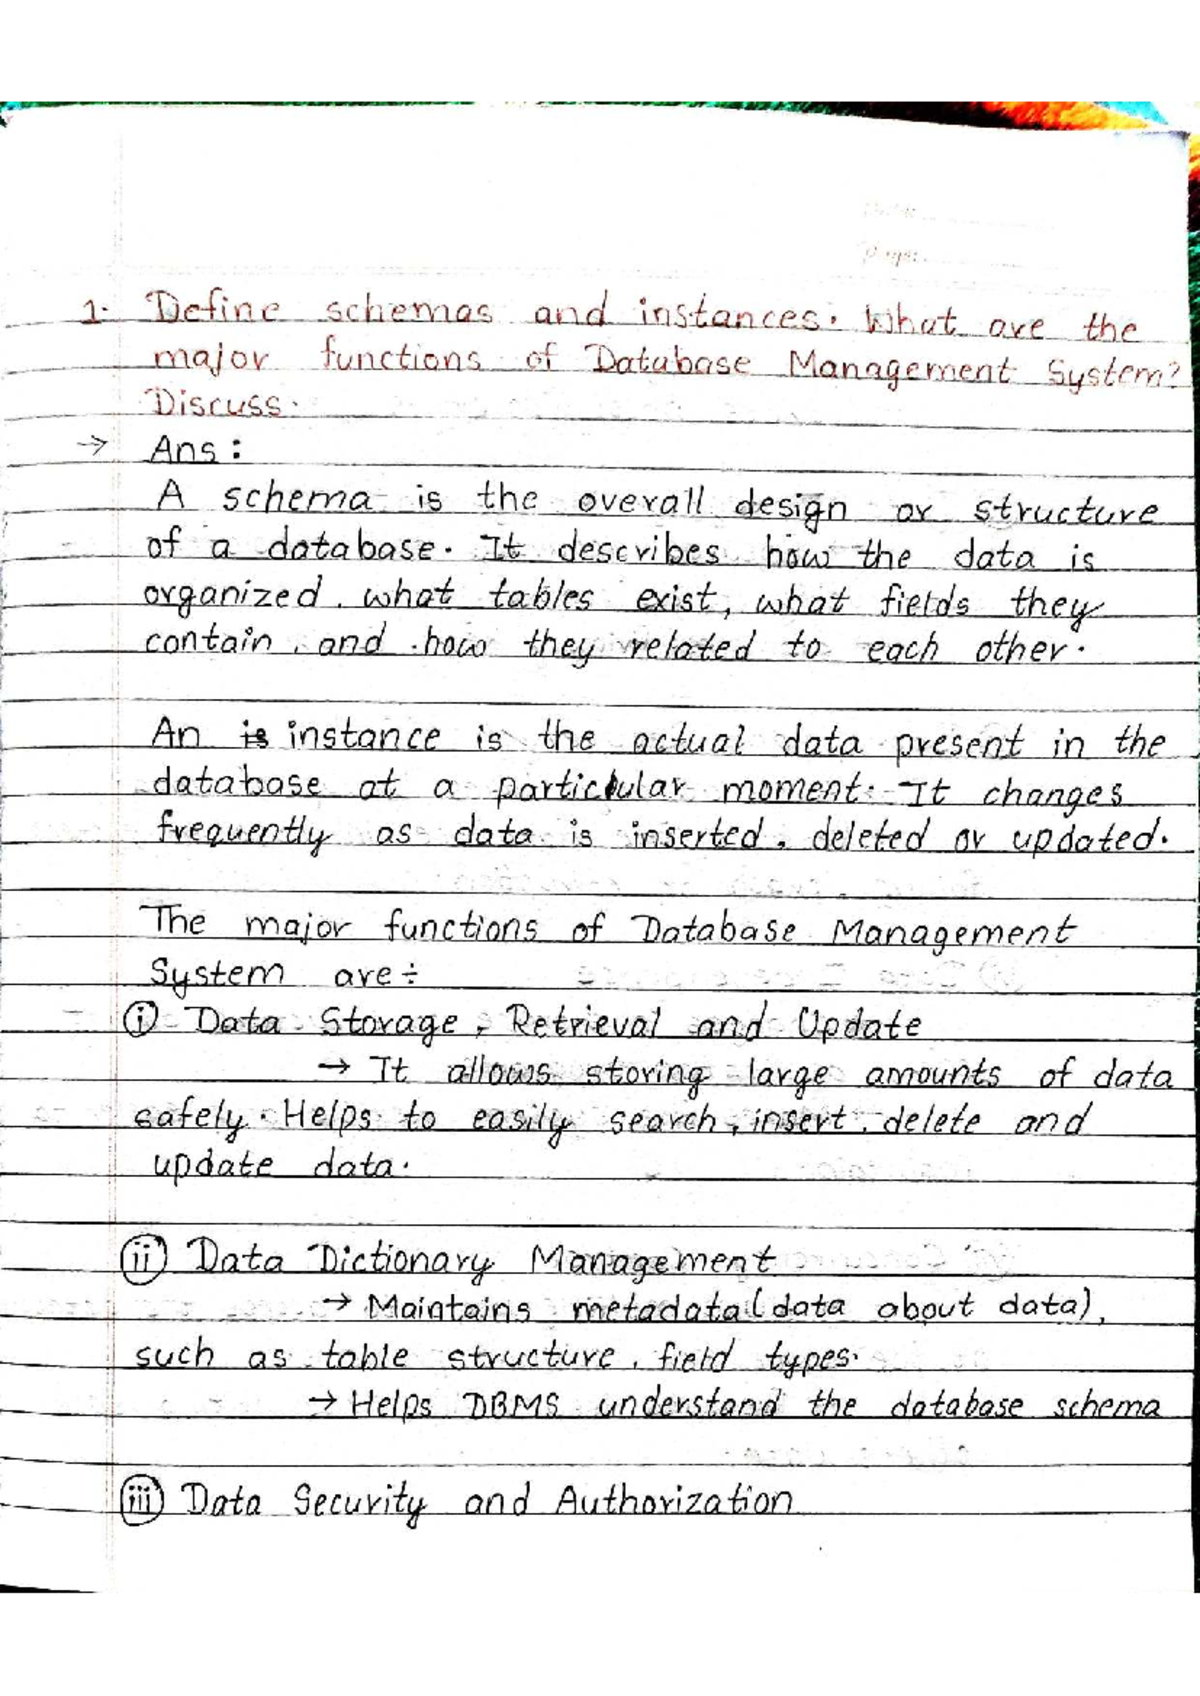 1. Define schemas and instances. What are the
major functions of Database Management System?
Discuss.
→ Ans :
A schema is the overall design or structure
of a database. It describes how the data is
organized, what tables exist, what fields they
contain, and how they related to each other.
An is instance is the actual data present in the
database at a particular moment. It changes
frequently as data is inserted, deleted or updated.
The major functions of Database Management
System are÷
(i) Data Storage, Retrieval and Update
→ It allows storing large amounts of data
safely. Helps to easily search, insert, delete and
update data.
(ii) Data Dictionary Management
→ Maintains metadata (data about data),
such as table structure, field types.
→ Helps DBMS understand the database schema
(iii) Data Security and Authorization